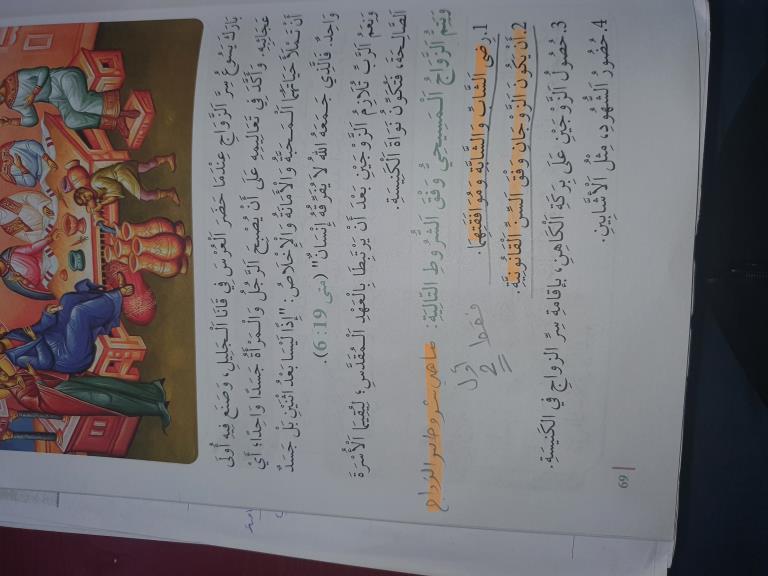 بَارَكَ يَسُوعُ سِرَّ الزَّوَاجِ عِنْدَمَا حَضَرَ الْعُرْسَ فِي قَانَا الْجَلِيلِ، وَصَنَعَ فِيهِ أُولَى
عَجَائِبِهِ. وَأَكَّدَ فِي تَعَالِيمِهِ عَلَى أَنْ يُصْبِحَ الرَّجُلُ وَالْمَرْأَةُ جَسَدًا وَاحِدًا؛ أَيْ
أَنْ تَمْلَأَ حَيَاتَهُمَا الْمَحَبَّةُ وَالْأَمَانَةُ وَالْإِخْلَاصُ: "إِذًا لَيْسَا بَعْدُ اثْنَيْنِ بَلْ جَسَدٌ
وَاحِدٌ. فَالَّذِي جَمَعَهُ اللهُ لَا يُفَرِّقُهُ إِنْسَانٌ" (متى 19 :6).
وَنِعَمُ الرَّبِّ تُلَازِمُ الزَّوْجَيْنِ بَعْدَ أَنْ يَرْتَبِطَا بِالْعَهْدِ الْمُقَدَّسِ؛ لِيُقِيمَا الْأُسْرَةَ
الصَّالِحَةَ، فَتَكُونَ نَوَاةَ الْكَنِيسَةِ.
وَيَتِمُّ الزَّوَاجُ الْمَسِيحِيُّ وَفْقَ الشُّرُوطِ التَّالِيَةِ: ماهي شروط سر الزواج
1. رِضَى الشَّابِّ وَالشَّابَّةِ وَمُوَافَقَتِهِمَا.
2. أَنْ يَكُونَ الزَّوْجَانِ وَفْقَ السِّنِّ الْقَانُونِيَّةِ.
فقط أول 2
3. حُصُولُ الزَّوْجَيْنِ عَلَى بَرَكَةِ الْكَاهِنِ، بِإِقَامَةِ سِرِّ الزَّوَاجِ فِي الْكَنِيسَةِ.
4. حُضُورُ الشُّهُودِ، مِثْلُ الْأَشَابِينِ.
69